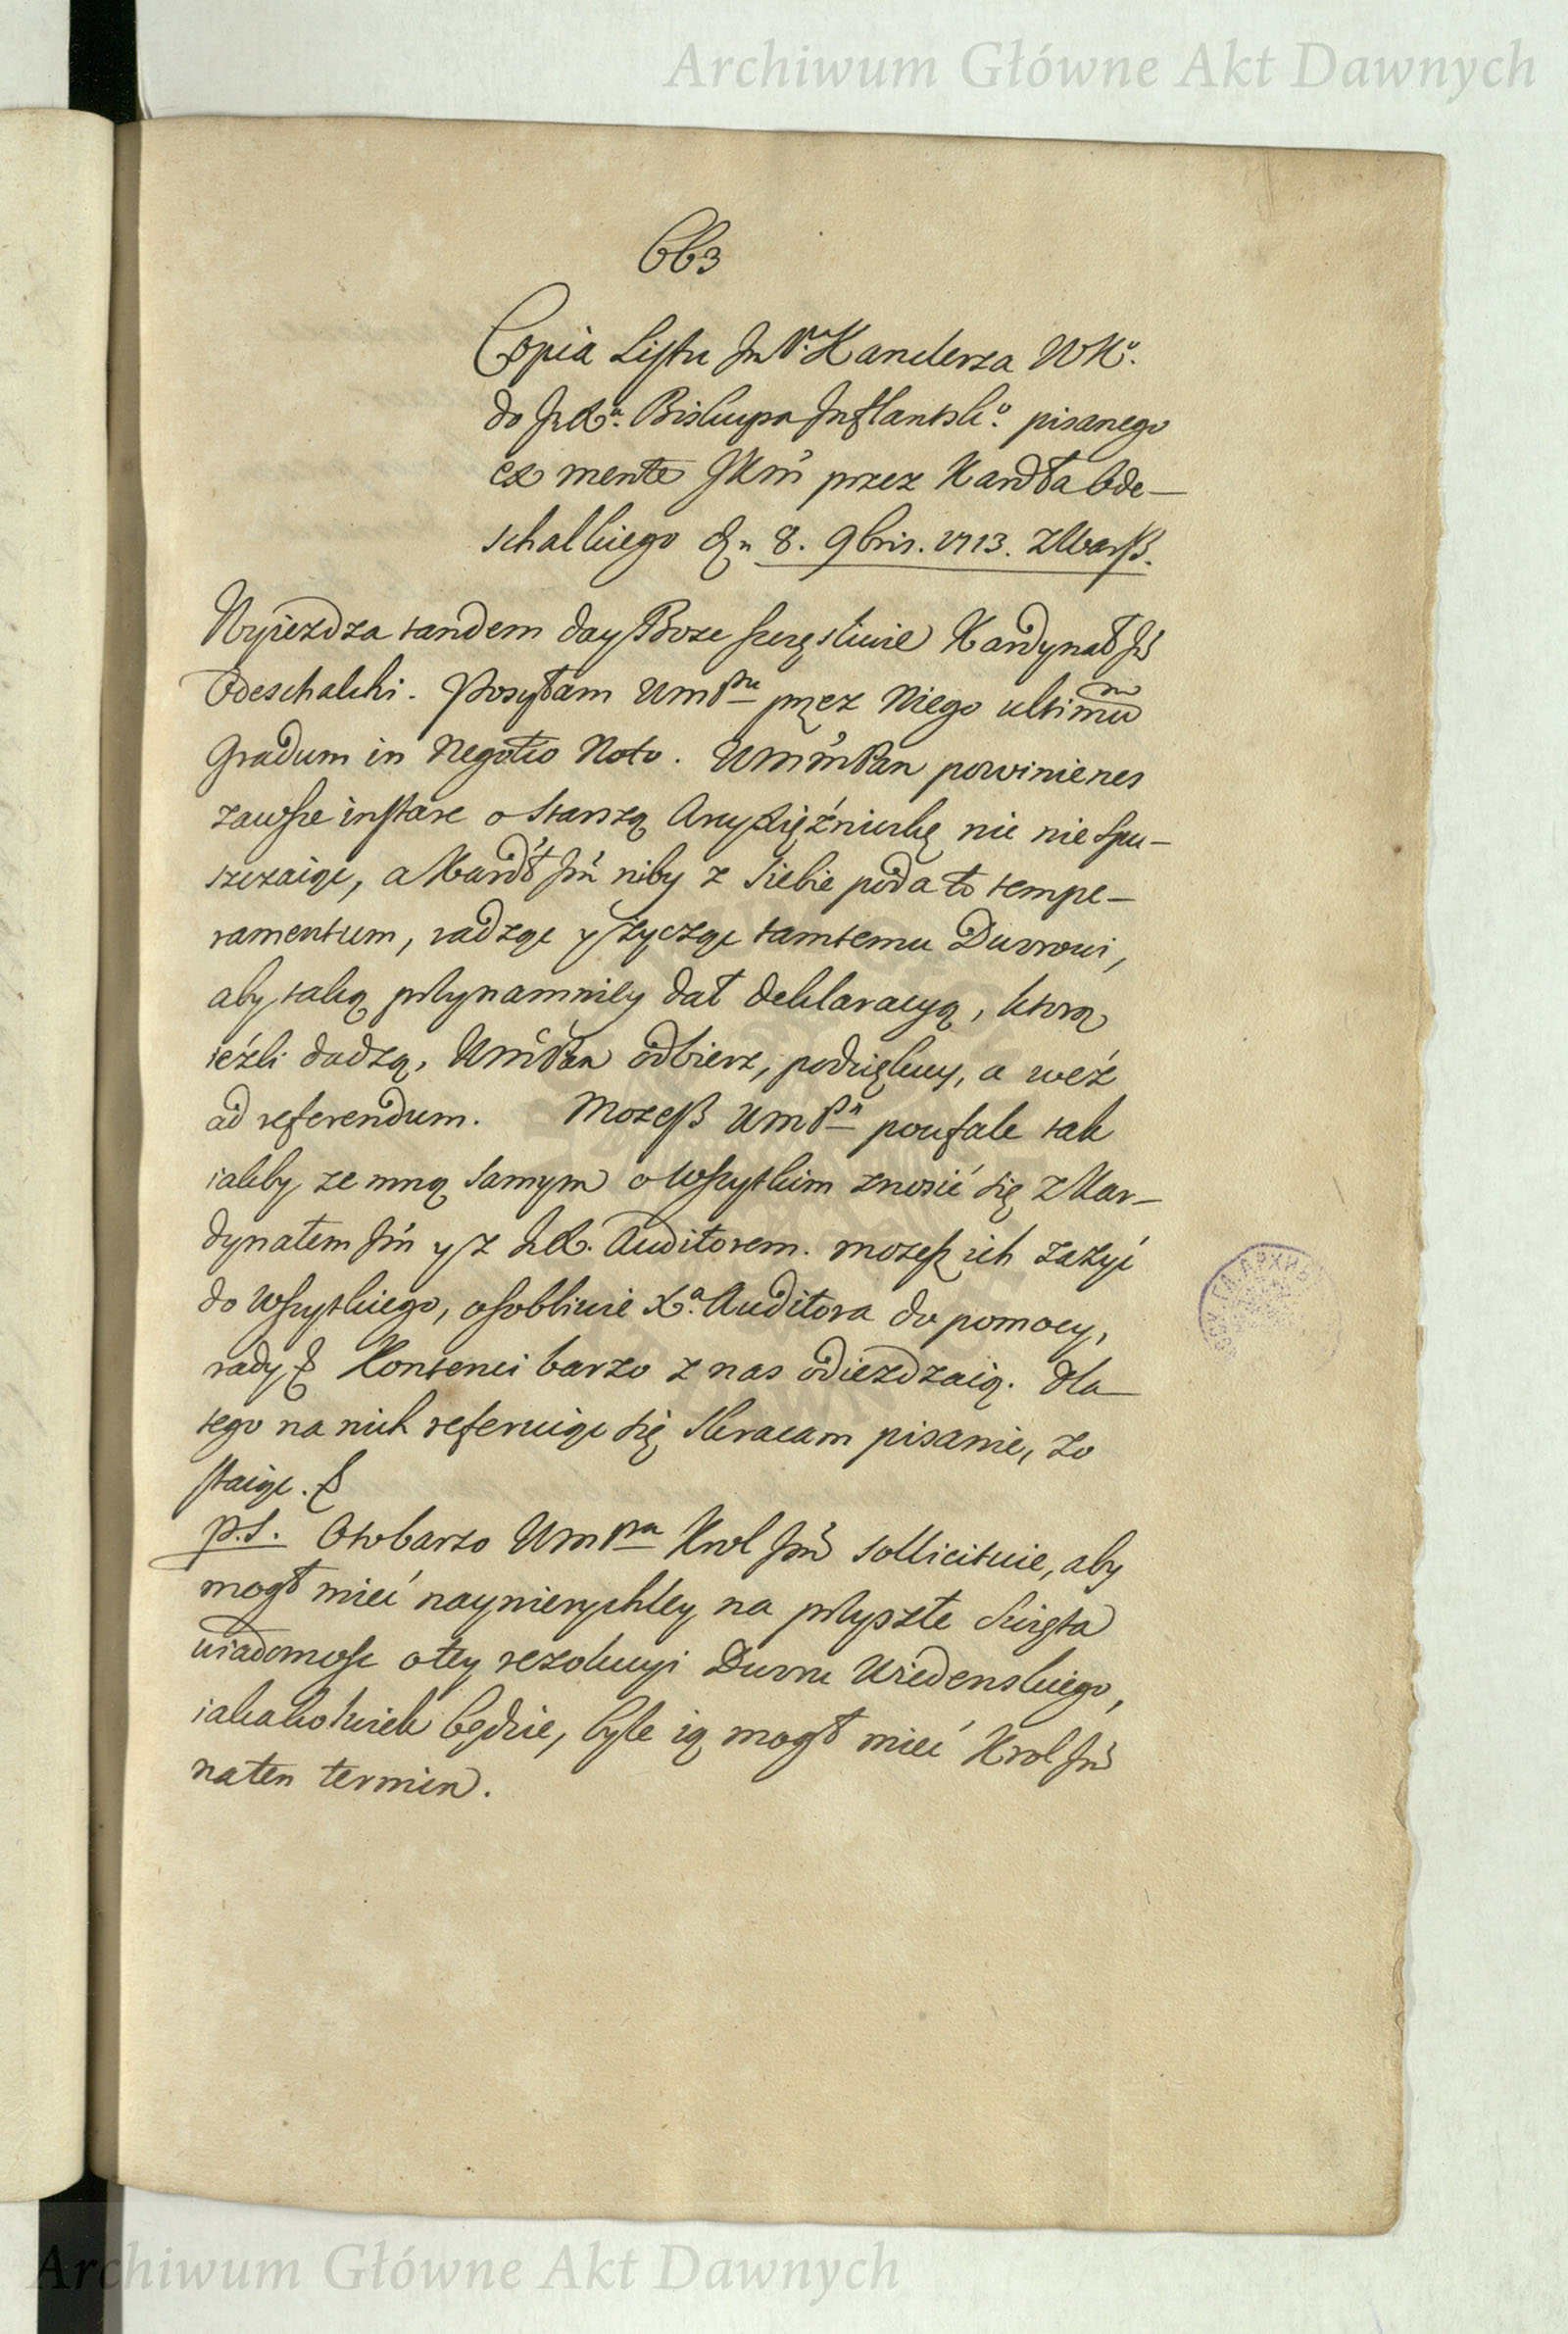 Archiwum Główne Akt Dawnych
663
Copia Listu Jm Pa Kanclerza WKo.
do JXa. Biskupa Inflantsko. pisanego
ex mente JKm przez Kardła Ode-
schalkiego dn 8. 9bris. 1713. z Warsz.
Wyiezdza tandem day Boze szczęsliwie Kardynał Jm
Odeschalchi. Posyłam UmPnu przez Niego ultimum
Gradum in Negotio Noto. UmmPan powinienes
zawsze instare o Starszą Arcyxięźniczkę nic nie spu-
szczaiąc, a Kardł Jm niby z Siebie poda to tempe-
ramentum, radząc y życząc tamtemu Dworowi,
aby taką przynamniey dał deklaracyą, ktorą
ieźli dadzą, UmPan odbierz, podziękuy, a weź
ad referendum. Mozesz UmPn poufale tak
iakby ze mną samym o wszytkim znosić się z Kar-
dynałem Jm y z JX. Auditorem. mozesz ich zazyć
do wszytkiego, osobliwie Xa. Auditora do pomocy,
rady & Kontenci barzo z nas odiezdzaią. dla
tego na nich referuiąc się skracam pisanie, zo
staiąc. &
P.S. Oto barzo UmPna Krol Jm sollicituie, aby
mogł mieć nayprierychley na przyszłe Swięta
wiadomosc o tey rezolucyi Dworu Wiedenskiego,
iakakolwiek będzie, byle ią mogł mieć Krol Jm
na ten termin.
Archiwum Główne Akt Dawnych